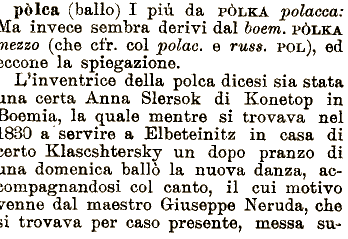 pòlca (ballo) I più da PÒLKA polacca:
Ma invece sembra derivi dal boem. PÒLKA
mezzo (che cfr. col polac. e russ. POL), ed
eccone la spiegazione.
L'inventrice della polca dicesi sia stata
una certa Anna Slersok di Konetop in
Boemia, la quale mentre si trovava nel
1830 a servire a Elbeteinitz in casa di
certo Klascshtersky un dopo pranzo di
una domenica ballò la nuova danza, ac-
compagnandosi col canto, il cui motivo
venne dal maestro Giuseppe Neruda, che
si trovava per caso presente, messa su-